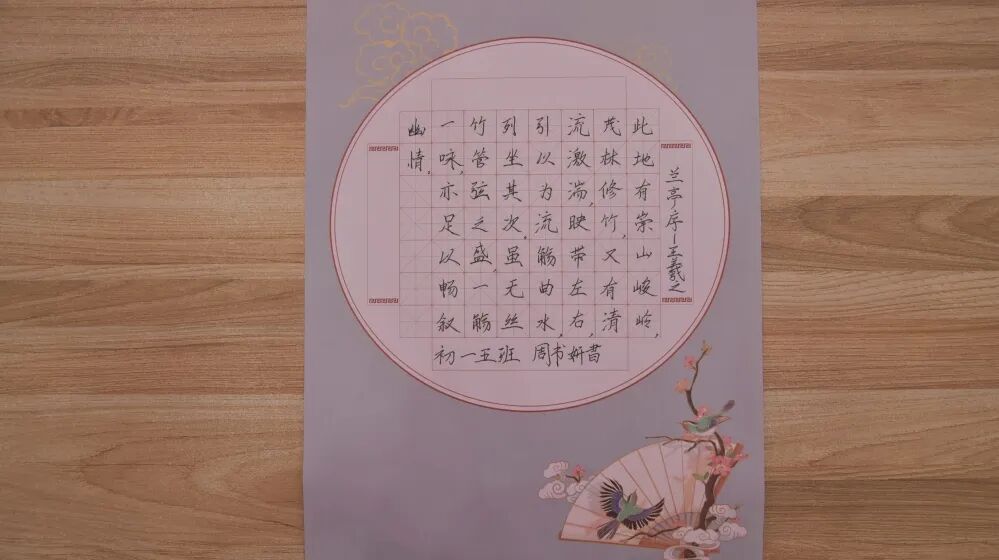 兰亭序—王羲之
此地有崇山峻岭，
茂林修竹，又有清
流激湍，映带左右，
引以为流觞曲水，
列坐其次。虽无丝
竹管弦之盛，一觞
一咏，亦足以畅叙
幽情。
初一五班 周书妍